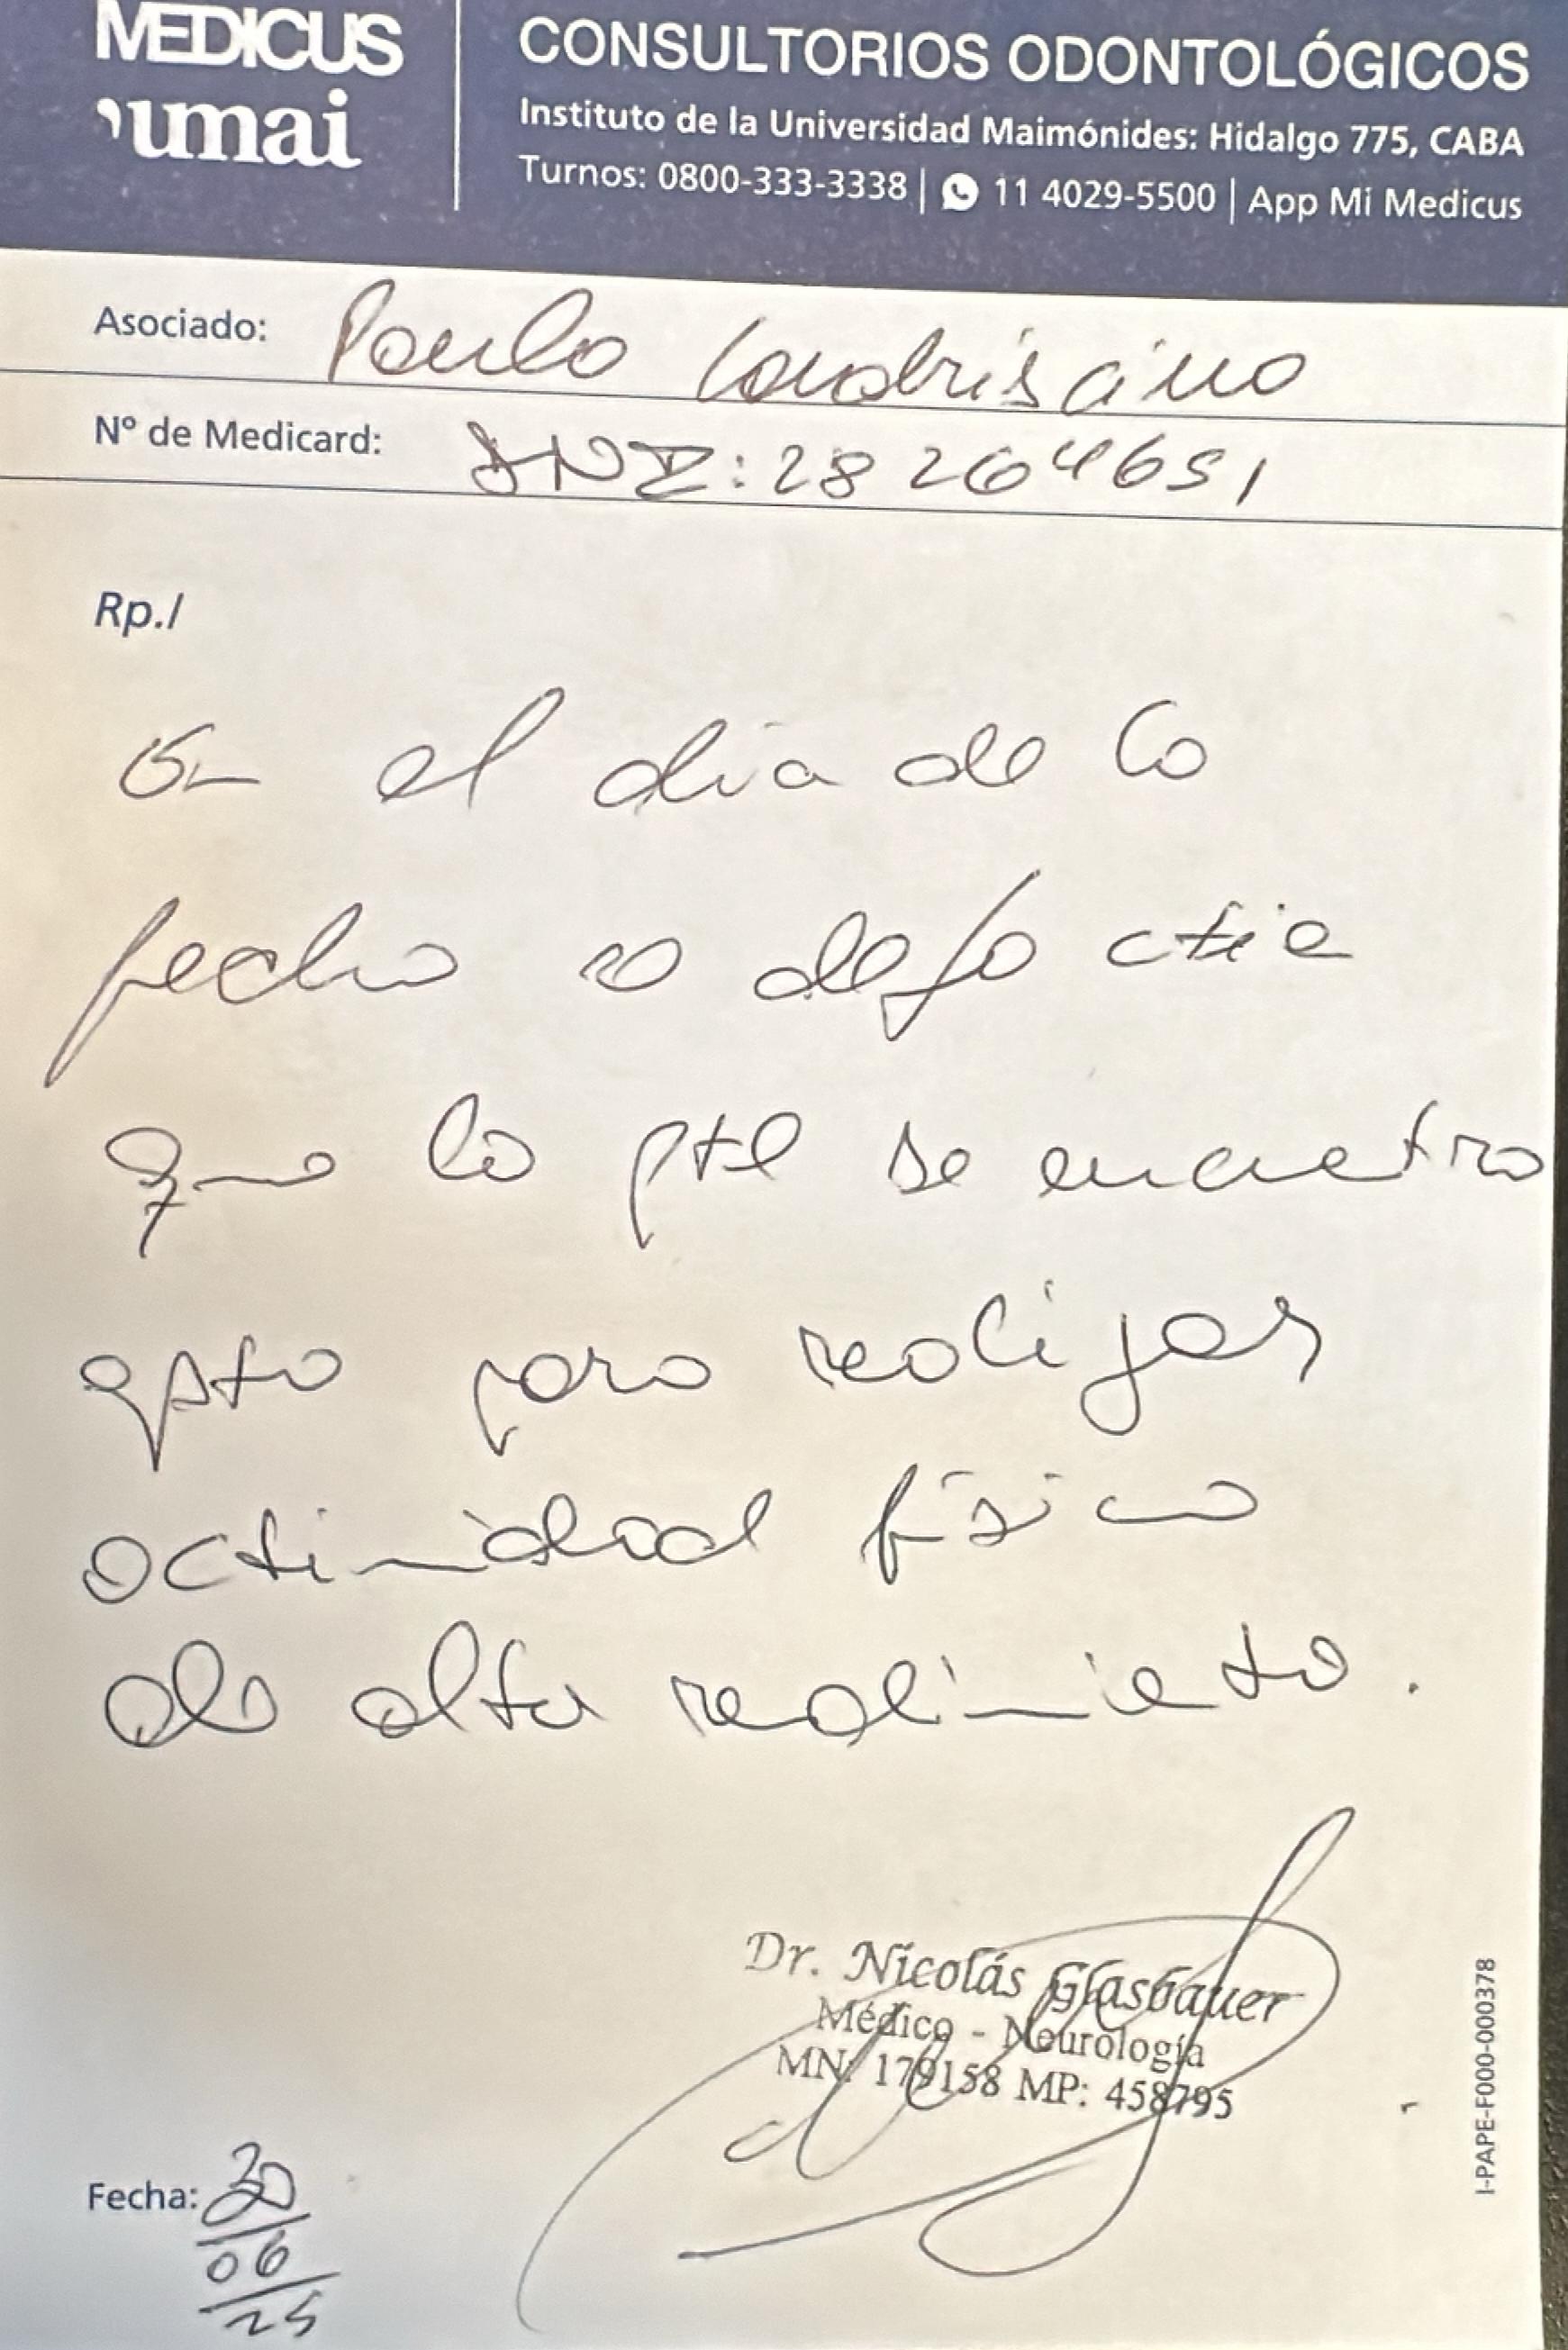 MEDICUS
umai
CONSULTORIOS ODONTOLÓGICOS
Instituto de la Universidad Maimónides: Hidalgo 775, CABA
Turnos: 0800-333-3338 | 11 4029-5500 | App Mi Medicus
Asociado: Paula
Nº de Medicard: DNI: 28 264651
Rp./
en el día de la
fecha se deja
que la pte se encuetra
apta para realizar
actividad física
de alto
Dr. Nicolás Glasbauer
Médico - Neurología
MN: 179158 MP: 458795
Fecha: 30/06/25
I-PAPE-F000-000378